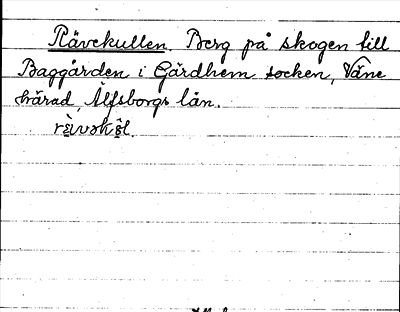 Rävekullen. Berg på skogen till
Baggården i Gärdhem socken, Väne
härad, Älfsborgs län.